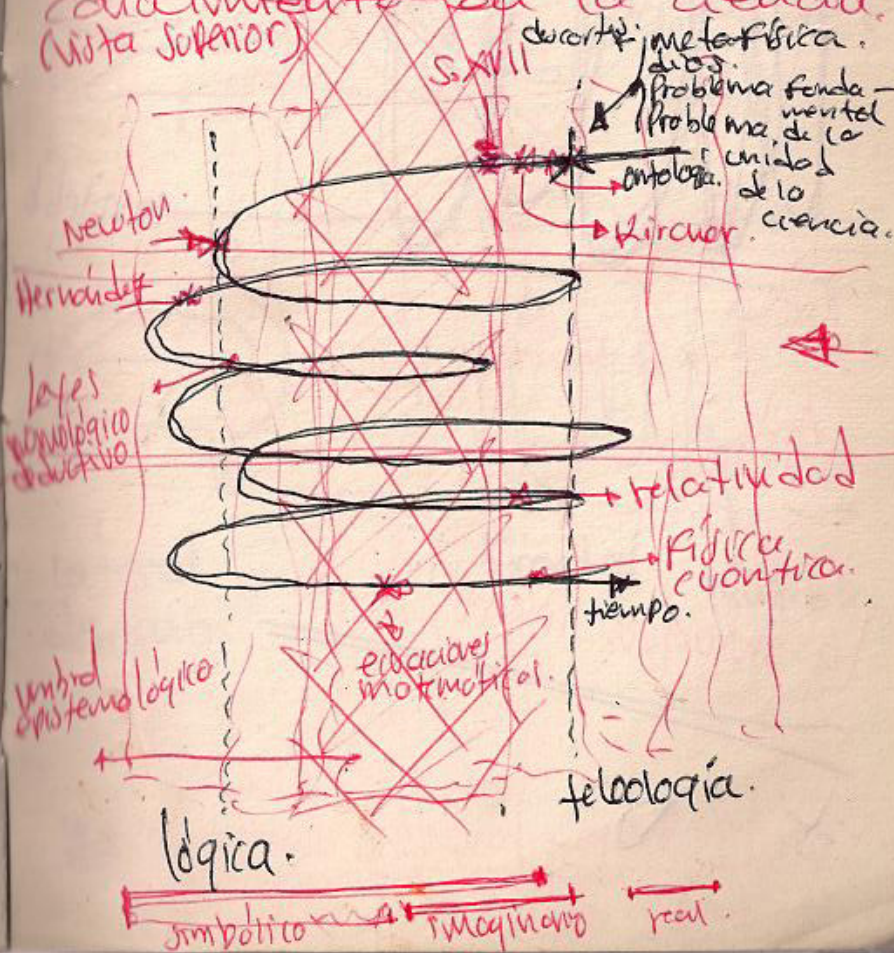 conocimiento en la ciencia.
(vista superior)
S. XVII
metafísica.
dios.
Problema fonda-
mental
Problema de la
unidad
de la
ciencia.
ontología.
Kircher.
Newton.
Hernández
leyes
nomológico
deductivo
relatividad
física
cuántica.
tiempo.
ecuaciones
matemáticas.
umbral
epistemológico
teleología.
lógica.
simbólico
imaginario
real.